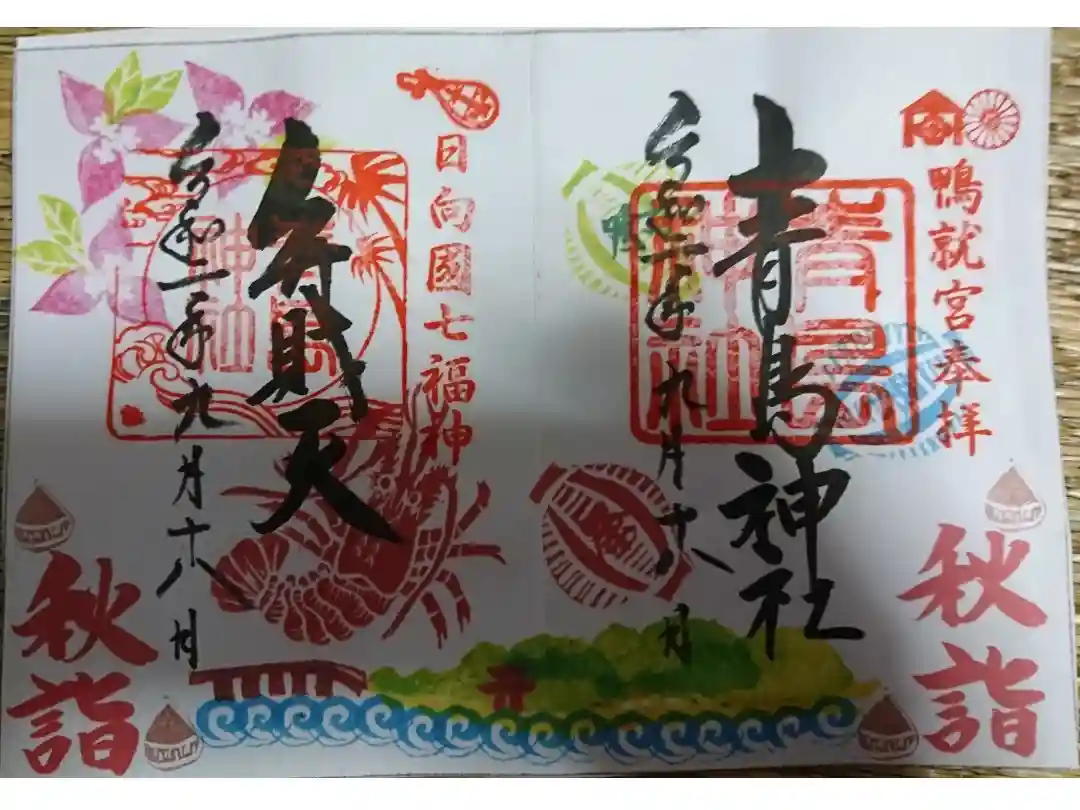 鴨就宮奉拝
秋詣
青島神社
青島神社
令和二年九月十八日
日向國七福神
弁財天
青島神社
令和二年九月十八日
秋詣